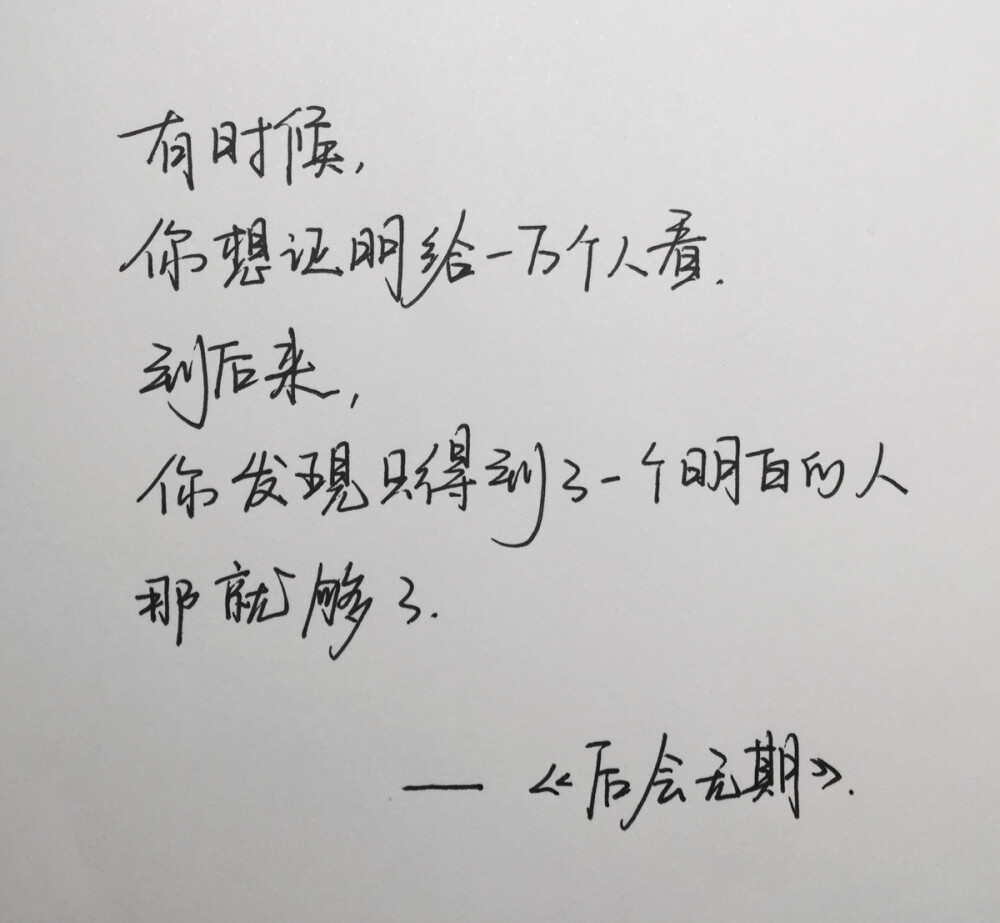 有时候,
你想证明给一万个人看.
到后来,
你发现只得到了一个明白的人
那就够了.
——《后会无期》.